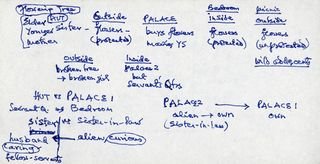 Flowering Tree
Elder HUT Outside PALACE Bedroom Picnic
Younger Sister - flowers - buys flowers Inside outside
mother (protected) moving YS flowers flowers
(protected) (unprotected)
outside Inside
broken tree Palace 2
→ broken girl but
servants' Qtrs
HUT vs PALACE 1
Servant Q vs Bedroom
sister vs Sister-in-law
husband ← alien, curious
(caring)
fellow-servants
PALACE 2 → PALACE 1
alien → own own
(sister-in-law)